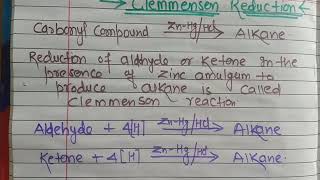 Clemmensen Reduction
Carbonyl Compound Zn-Hg/Hcl Alkane
Reduction of aldhyde or Ketone in the
presence of zinc amulgum to
produce alkane is called
Clemmenson reaction
Aldehyde + 4[H] Zn-Hg/Hcl Alkane
Ketone + 4[H] Zn-Hg/Hcl Alkane.